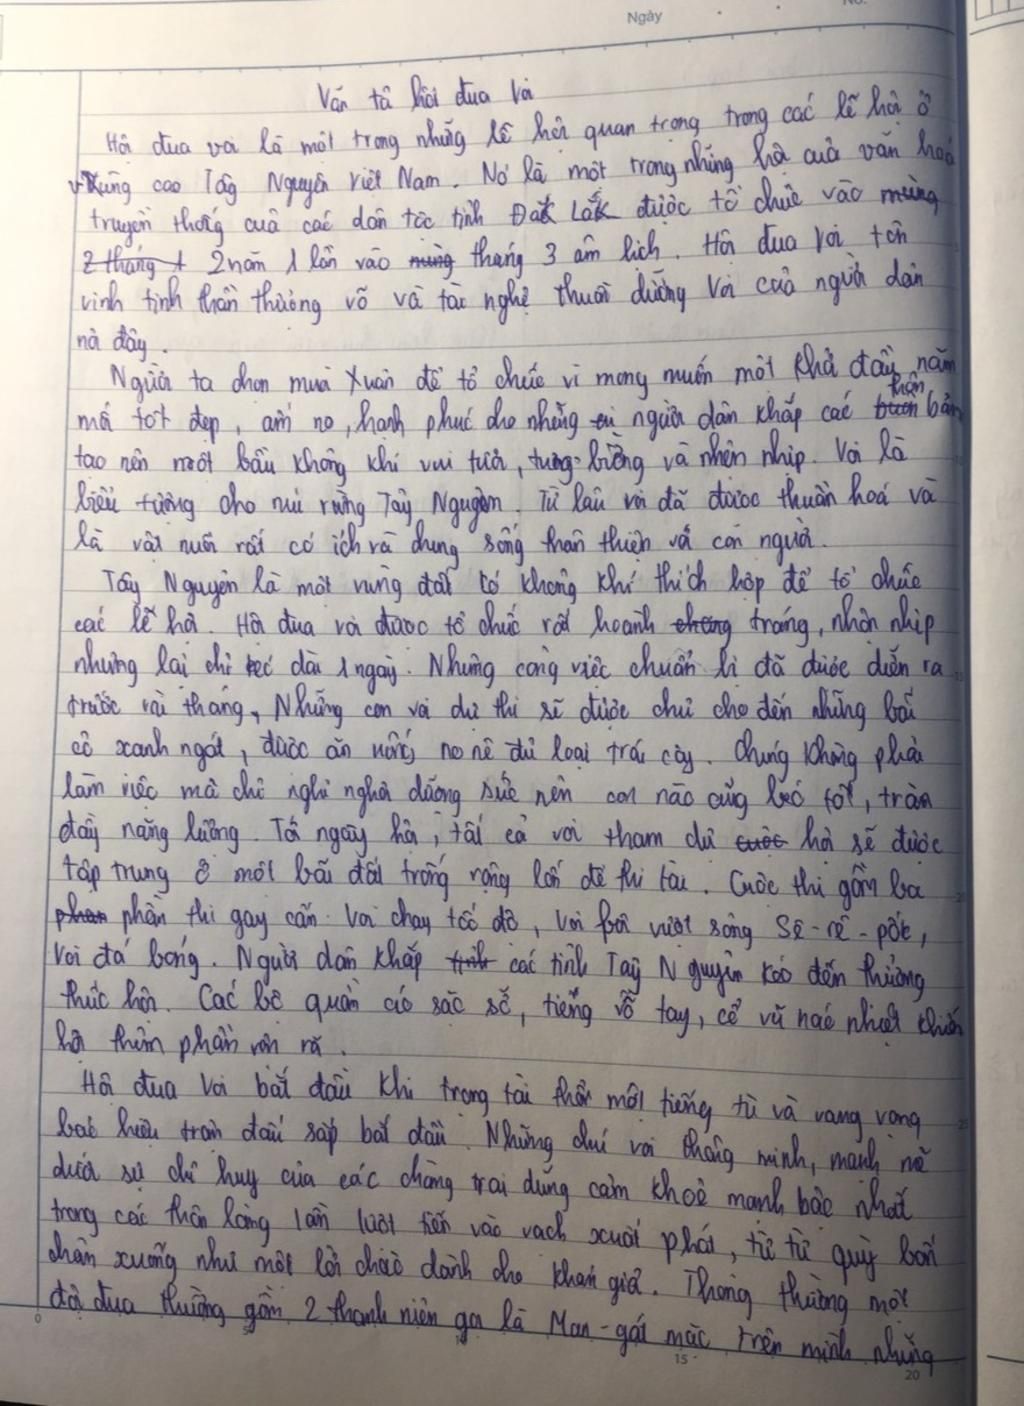 Ngày
No.
Văn tả hội đua voi
Hội đua voi là một trong những lễ hội quan trọng trong các lễ hội ở
vùng cao Tây Nguyên Việt Nam. Nó là một trong những hội của văn hoá
truyền thống của các dân tộc tỉnh Đắk Lắk được tổ chức vào mùng
2 tháng 1 2 năm 1 lần vào mùng tháng 3 âm lịch. Hội đua voi tôn
vinh tinh thần thượng võ và tài nghệ thuần dưỡng voi của người dân
nơi đây.
Người ta chọn mùa xuân để tổ chức vì mong muốn một khởi đầu năm
mới tốt đẹp, ấm no, hạnh phúc cho những người dân khắp các buôn thôn bản
tạo nên một bầu không khí vui tươi, tưng bừng và nhộn nhịp. Voi là
biểu tượng cho núi rừng Tây Nguyên. Từ lâu voi đã được thuần hoá và
là vật nuôi rất có ích và chung sống thân thiện với con người.
Tây Nguyên là một vùng đất có không khí thích hợp để tổ chức
các lễ hội. Hội đua voi được tổ chức rất hoành tráng, nhộn nhịp
nhưng lại chỉ kéo dài 1 ngày. Nhưng công việc chuẩn bị đã được diễn ra
trước vài tháng, Những con voi dự thi sẽ được chủ cho đến những bãi
cỏ xanh ngát, được ăn uống no nê đủ loại trái cây. Chúng không phải
làm việc mà chỉ nghỉ ngơi dưỡng sức nên con nào cũng béo tốt, tràn
đầy năng lượng. Tới ngày hội, tất cả voi tham dự cuộc hội sẽ được
tập trung ở một bãi đất trống rộng lớn để thi tài. Cuộc thi gồm ba
phần phần thi gay cấn: Voi chạy tốc độ, voi bơi vượt sông Sê-rê-pốk,
Voi đá bóng. Người dân khắp tỉnh các tỉnh Tây Nguyên kéo đến thưởng
thức hội. Các bộ quần áo sặc sỡ, tiếng vỗ tay, cổ vũ náo nhiệt khiến
hội thêm phần rộn rã.
Hội đua voi bắt đầu khi trọng tài thổi một tiếng tù và vang vọng
báo hiệu trận đấu sắp bắt đầu. Những chú voi thông minh, mạnh mẽ
dưới sự chỉ huy của các chàng trai dũng cảm khoẻ mạnh bậc nhất
trong các thôn làng lần lượt tiến vào vạch xuất phát, từ từ quỳ bốn
chân xuống như một lời chào dành cho khán giả. Thông thường một
đội đua thường gồm 2 thanh niên gọi là Man-gát mặc trên mình những
15
20